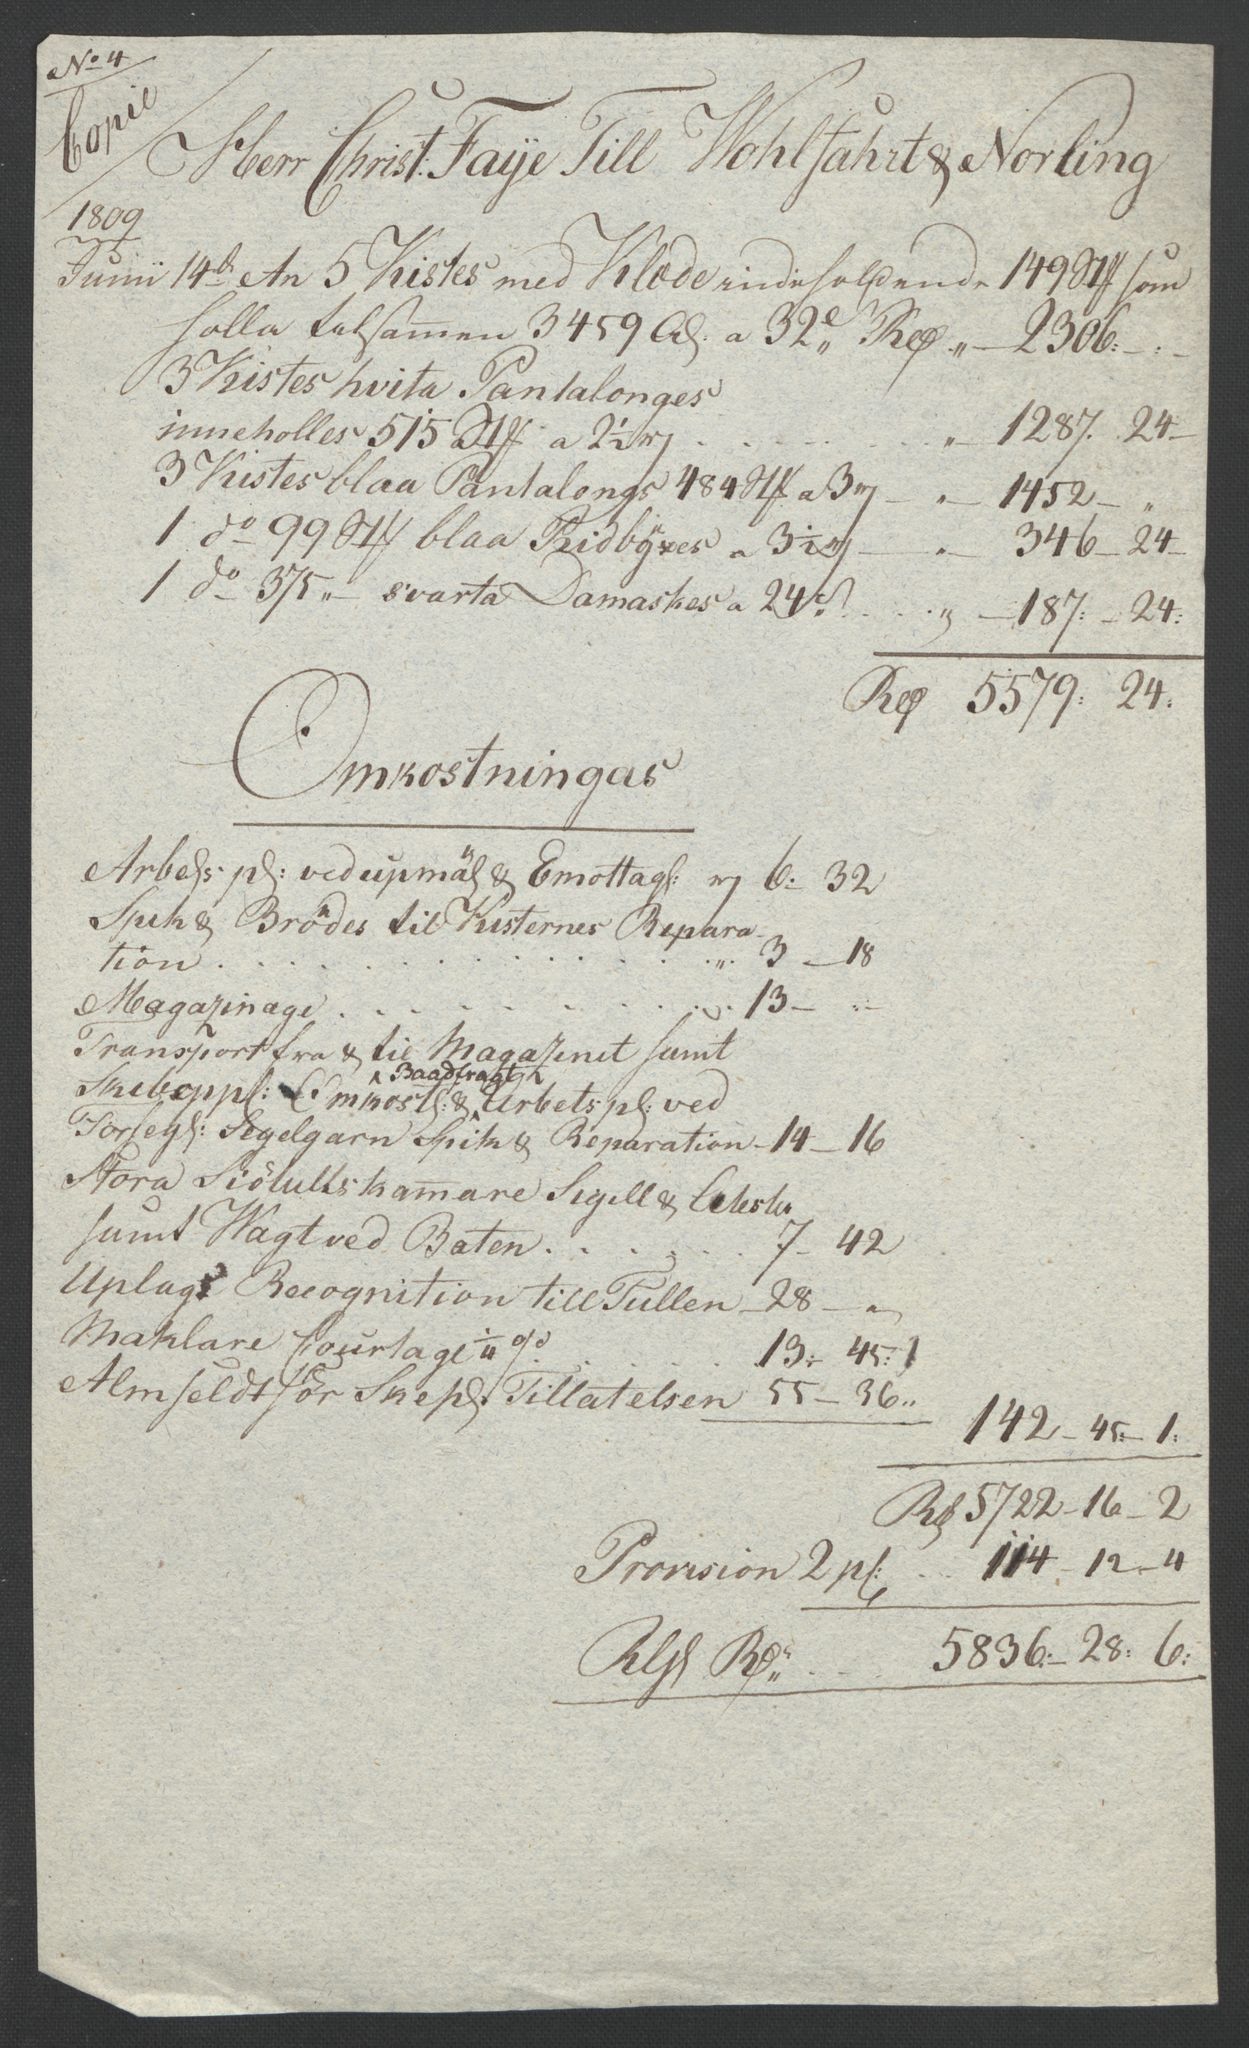 No 4
Copie
Herr Christ: Faÿe Till Wohlfahrt & Norling
1809
Junii 14de An 5 Kistes med Klæde indeholdende 149 Stk som
holla tilsamen 3459 Al: a 32s„ Rd „ — 2306:—:—
3 Kistes hvita Pantalonges
inneholles 515 Stk a 2½ rd . . . . . . . „ — 1287. 24—
3 Kistes blaa Pantalongs 484 Stk a 3 rd — „ — 1452 — „
1 do 99 Stk blaa Ridbÿxes a 3½ rd — „ — 346 — 24—
1 do 375 „— svarta Damaskes a 24s. . . . . „ — 187: — 24:
Rd 5579: 24:
Omkostningar
Arbets pl: ved upmäl & Emottagl: rd 6:— 32
Spik & Brädes til Kisternes Repara
tion . . . . . . . . . . . „ 3 — 18
Magazinage . . . . . . . . . . 13 — „—
Transport fra & til Magazinet samt
Baadfragt
Skibeppl: Omkostl: & Arbets pl: ved
Forsegl: Segelgarn Spik & Reparation — 14 — 16
Stora Siötullskamare Segell &
samt Wagt ved Baten . . . . . . 7 — 42
Uplags Recognition till Tullen — 28 — „
Maklare Courtage ¼ %. . . . . . 13:— 45: 1
Almfeldt för Skepl. Tillatelsen 55 — 36 „
142 — 45:— 1:
Rd 5722 — 16 — 2
Provision 2 pl: . . 114 — 12 — 4
Rigl Rd„ . . . 5836:— 28: 6: